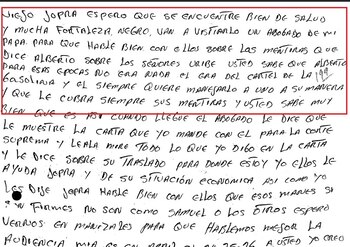 VIEJO JOPRA ESPERO QUE SE ENCUENTRE BIEN DE SALUD
Y MUCHA FORTALEZA, NEGRO, VAN A VISITARLO UN ABOGADO DE MI
PAPA. PARA QUE HABLE BIEN CON ELLOS SOBRE LAS MENTIRAS QUE
DICE ALBERTO SOBRE LOS SEÑORES URIBE USTED SABE QUE ALBERTO
PARA ESAS EPOCAS NO ERA NADA EL ERA DEL CARTEL DE LA
GASOLINA Y EL SIEMPRE QUIERE MANEJARLO A UNO A SU MANERA
Y QUE LE CUBRA SIEMPRE SUS MENTIRAS Y USTED SABE MUY
BIEN QUE ES ASI CUANDO LLEGUE EL ABOGADO LE DICE QUE
LE MUESTRE LA CARTA QUE YO MANDE CON EL PARA LA CORTE
SUPREMA Y LEALA MIRE TODO LO QUE YO DIGO EN LA CARTA
Y LE DICE SOBRE SU TRASLADO PARA DONDE ESTOY YO ELLOS LE
AYUDA JOPRA Y DE SU SITUACION ECONOMICA ASI COMO YO
LES DIJE JOPRA HABLE BIEN CON ELLOS QUE ESOS MANES SI
SON FIRMES NO SON COMO SAMUEL O LOS OTROS ESPERO
VERNOS EN MANIZALES PARA QUE HABLEMOS MEJOR LA
AUDIENCIA MIA ES EN ABRIL 24-25-26 A USTED YO CREO